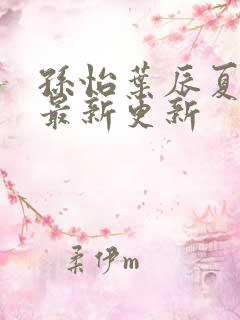 孫怡葉辰夏
最新更新
柔伊m